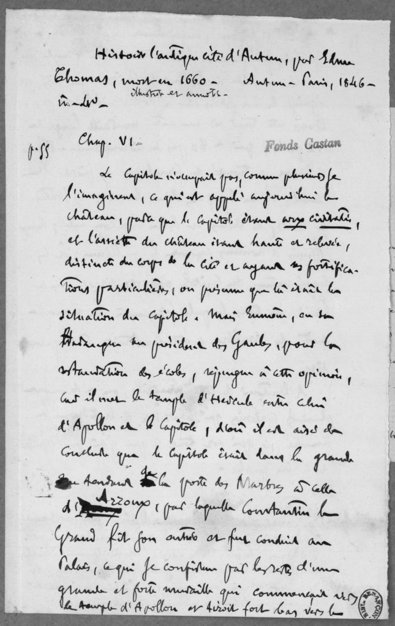 Histoire de l'antique cité d'Autun, par Edme
Thomas, mort en 1660 — Autun - Paris, 1846 —
illustrée et annotée —
in-4° —
p. 55
Chap. VI —
Fonds Castan
Le Capitole n'occupait pas, comme plusieurs se
l'imaginent, ce qui est appelé aujourd'hui le
château, parce que le Capitole étant arx civitatis,
et l'assiette du château étant haute et relevée,
distincte du corps de la cité et ayant ses fortifica-
tions particulières, on présume que là était la
situation du Capitole. Mais Eumène, en sa
Harangue au président des Gaules, pour la
restauration des écoles, répugne à cette opinion,
car il met le temple d'Hercule entre celui
d'Apollon et le Capitole, d'où il est aisé de
conclure que le Capitole était dans la grande
rue tendant de la porte des Marbres à celle
d'Arroux, par laquelle Constantin le
Grand fit son entrée et fut conduit au
Palais, ce qui se confirme par les restes d'une
grande et forte muraille qui commençait vers
le temple d'Apollon et tirait fort bas vers le